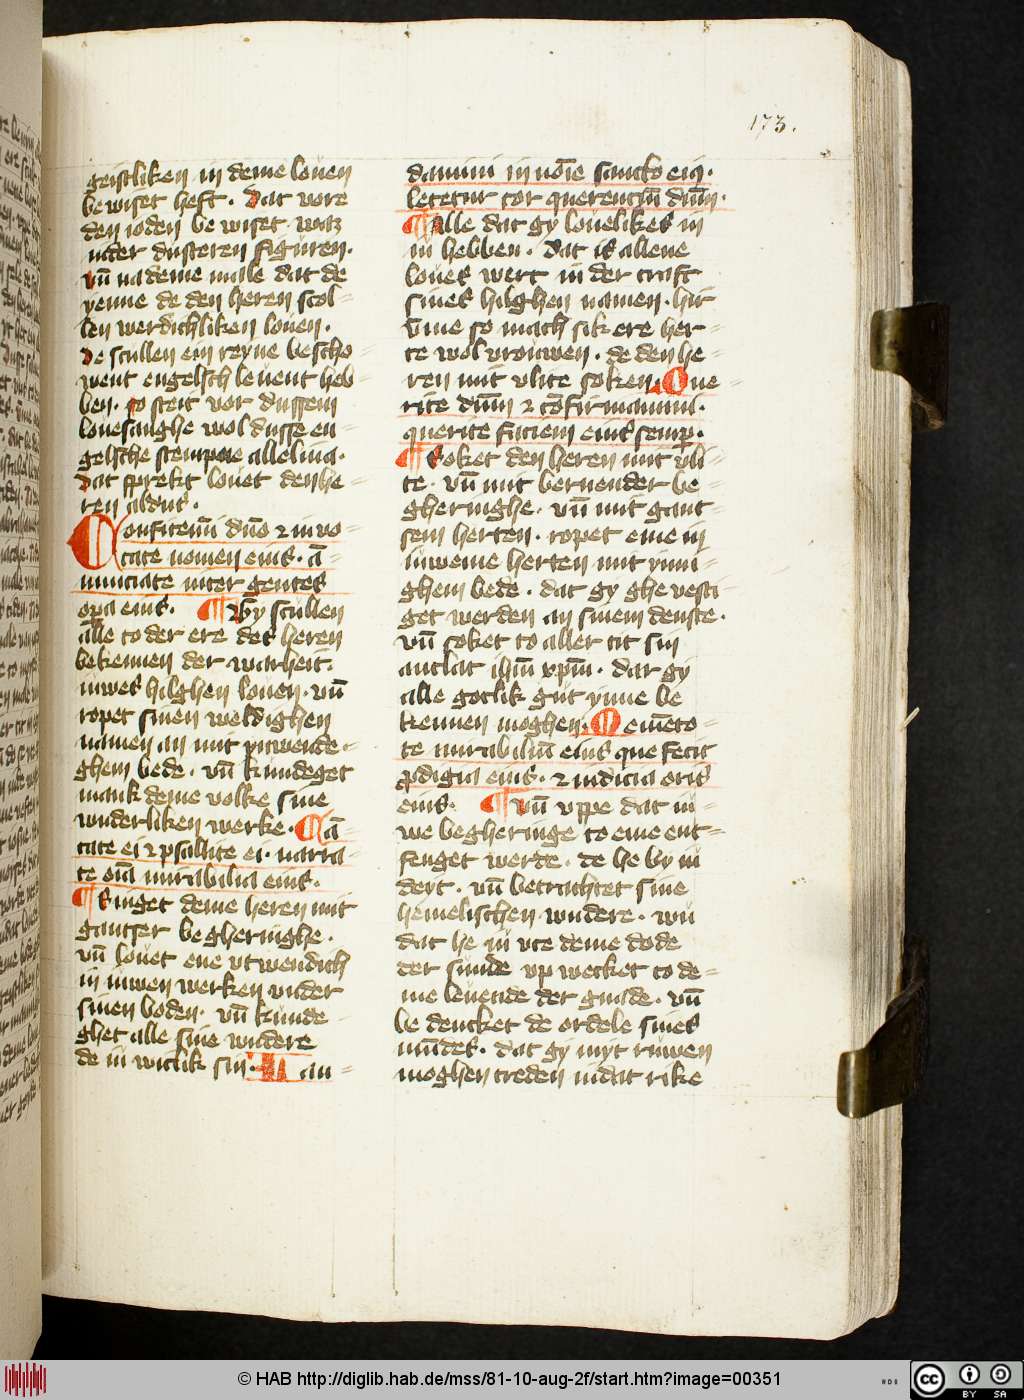 173.
geistliken in deme louen
be wiset heft. Dat vore
den ioden be wiset waz
under dusteren figuren.
vn̄ na deme male dat de
yenne de den heren scol=
len werdichliken louen.
De scullen ein reyne bescho=
went engelsch leuent heb=
ben. so steit vor dussem
louesanghe wol dusse en=
gelsche stempne alleluia.
Dat sprekt louet den he=
ren aldus.
Confitem̄ dn̄o ⁊ in vo=
cate nomen eius. ā=
nunciate inter gentes
opa eius. ¶ Wy scullen
alle to der ere des heren
bekennen der warheit.
inwes hilghen louen. vn̄
ropet sinen weldighen
namen an mit ynwende=
ghem bede. vn̄ kundeget
mank deme volke sine
wnderliken werke. Cā=
tate ei ⁊ psallite ei. narra=
te om̄a mirabilia eius.
¶ Singet deme heren mit
gantser be gheringhe.
vn̄ louet ene vtwendich
in iuwen werken vnder
sinen boden. vn̄ kunde=
ghet alle sine wndere
de in witlik sin. Lau=
damini in nōie sancto eiꝰ.
letetur cor querentiū dn̄m.
¶ Alle dat gy louelikes in
iu hebben. dat is allene
loues wert in der craft
sines hilghen namen. hir
vm̄me so mach sik ere her=
te wol vrouwen. de den he=
ren mit vlite soken. Que=
rite dn̄m ⁊ cōfirmamini.
querite faciem eius semp.
¶ Soket den heren mit vli=
te. vn̄ mit bernender be=
gheringhe. vn̄ mit gant=
sem herten. ropet ene in
iuweme herten mit ynni=
ghem bede. dat gy ghe vesti=
get werden an sinem denste.
vn̄ soket to aller tit sin
antlat ih̄m xp̄m. dar gy
alle gotlik gut ynne be
kennen moghen. Memēto=
te mirabiliū eius que fecit
ꝓdigia eius. ⁊ iudicia oris
eius. ¶ Vn̄ vppe dat iu=
we begheringe to eme ent=
fenget werde. de he by iu
deyt. vn̄ betrachtet sine
hemelischen wndere. wu
dat he iu vte deme dode
der sunde vp wecket to de=
me leuende der gnade. vn̄
be dencket de ordele sines
mūdes. dat gy myt ruwen
moghen treden in dat rike
© HAB http://diglib.hab.de/mss/81-10-aug-2f/start.htm?image=00351
cc BY SA